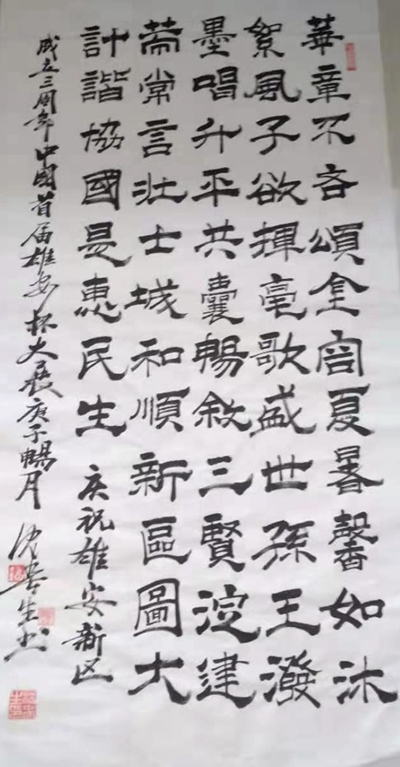 華章不吝頌全容夏馨如沐
絮風子欲揮毫歌盛世孫王潑
墨唱升平共囊暢敘三賢淀建
常言壯士城和順新區圖大
計諧協國是惠民生 庆祝雄安新区
成立三周年中國首届雄安杯大展庚子暢月 沈生书